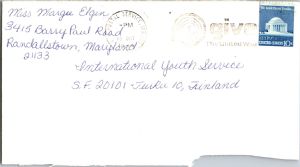 Miss Margie Elgen
3415 Barry Paul Road
Randallstown, Maryland
21133
PM
give
The United Way
10c
International Youth Service
S.F. 20101 - Turku 10, Finland